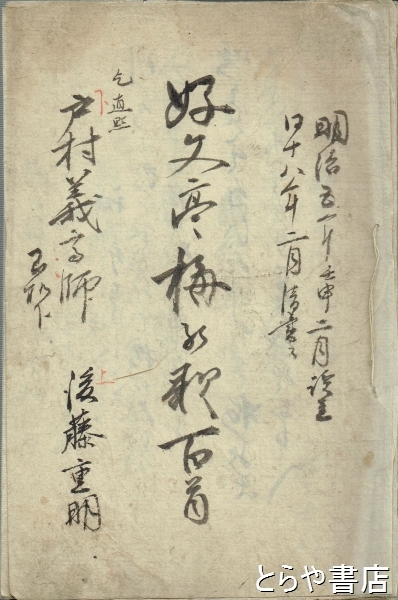 明治五年壬申二月詠
同十八年二月清書
好文亭梅の歌百首
乞直
戸村義高師
玉机下
後藤重明
上
とらや書店